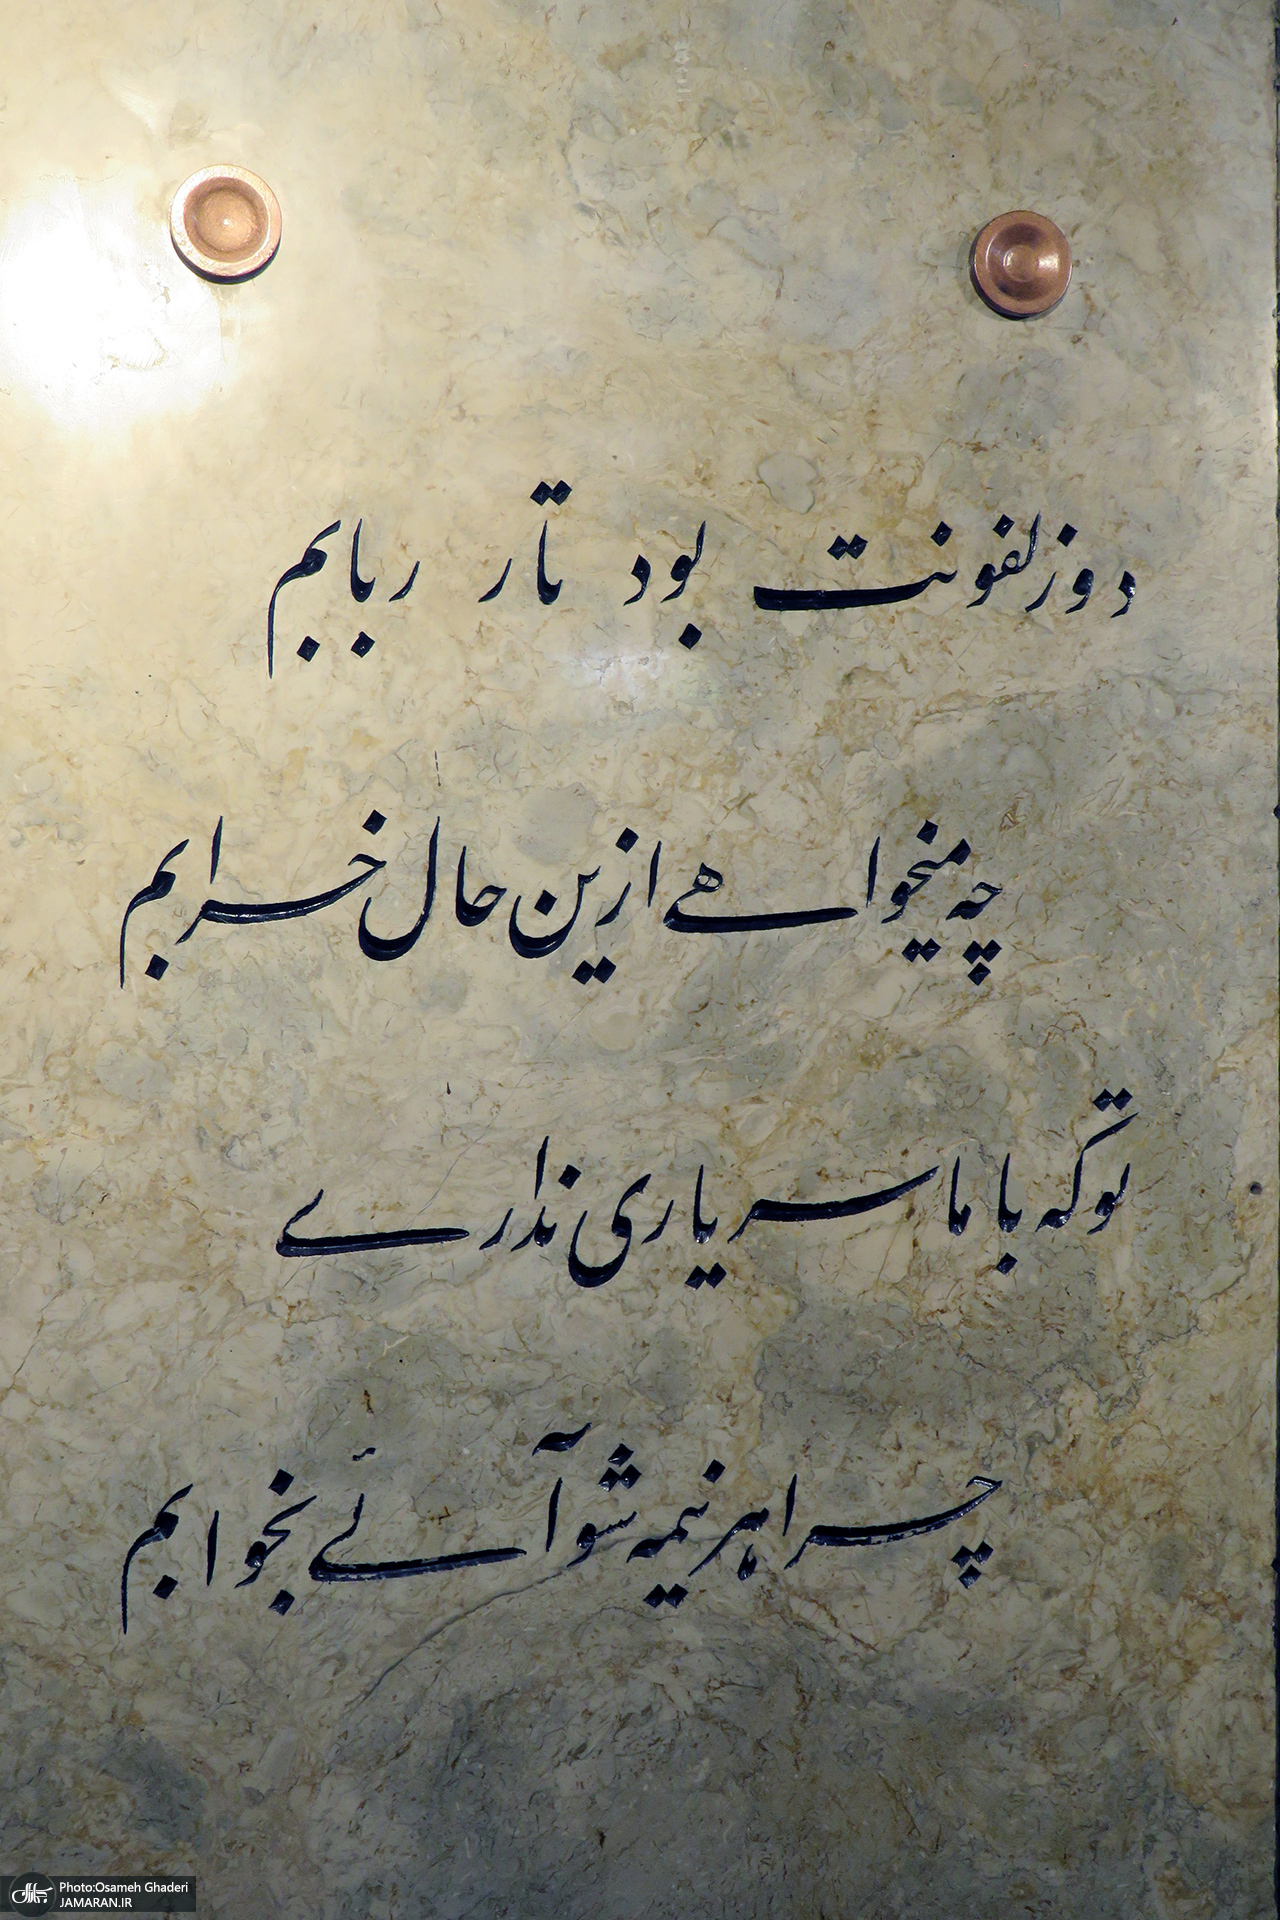 دو زلفونت بود تار ربابم
چه میخواهی ازین حال خرابم
تو که با ما سر یاری نداری
چرا هر نیمه شو آئی بخوابم
Photo:Osameh Ghaderi
JAMARAN.IR